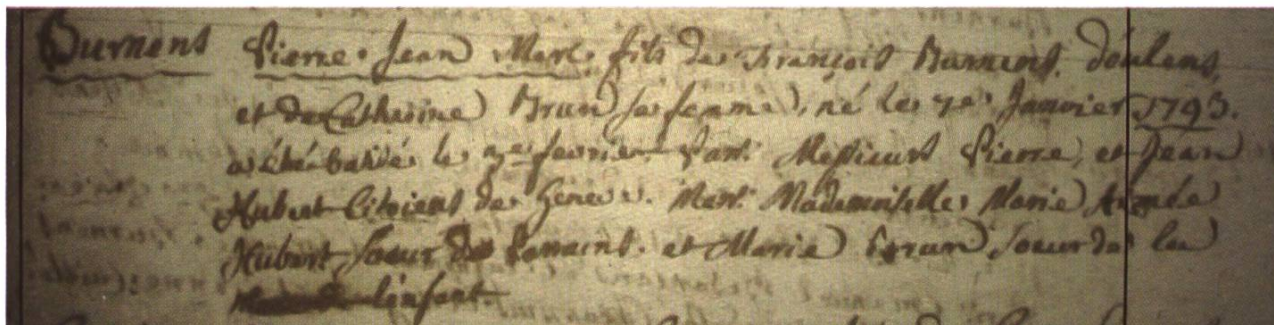 Burnens Pierre Jean Marc fils de François Burnens, d'oulens,
et de Catherine Brun sa femme, né le 7e Janvier 1793.
a été batisé le 3e fevrier. Parr. Messieurs Pierre, et Jean
Hubert Citoiens de Geneve. Marr. Mademoiselle Marie Aimée
Hubert, soeur des Parrains. et Marie Brun soeur de la
l'enfant.